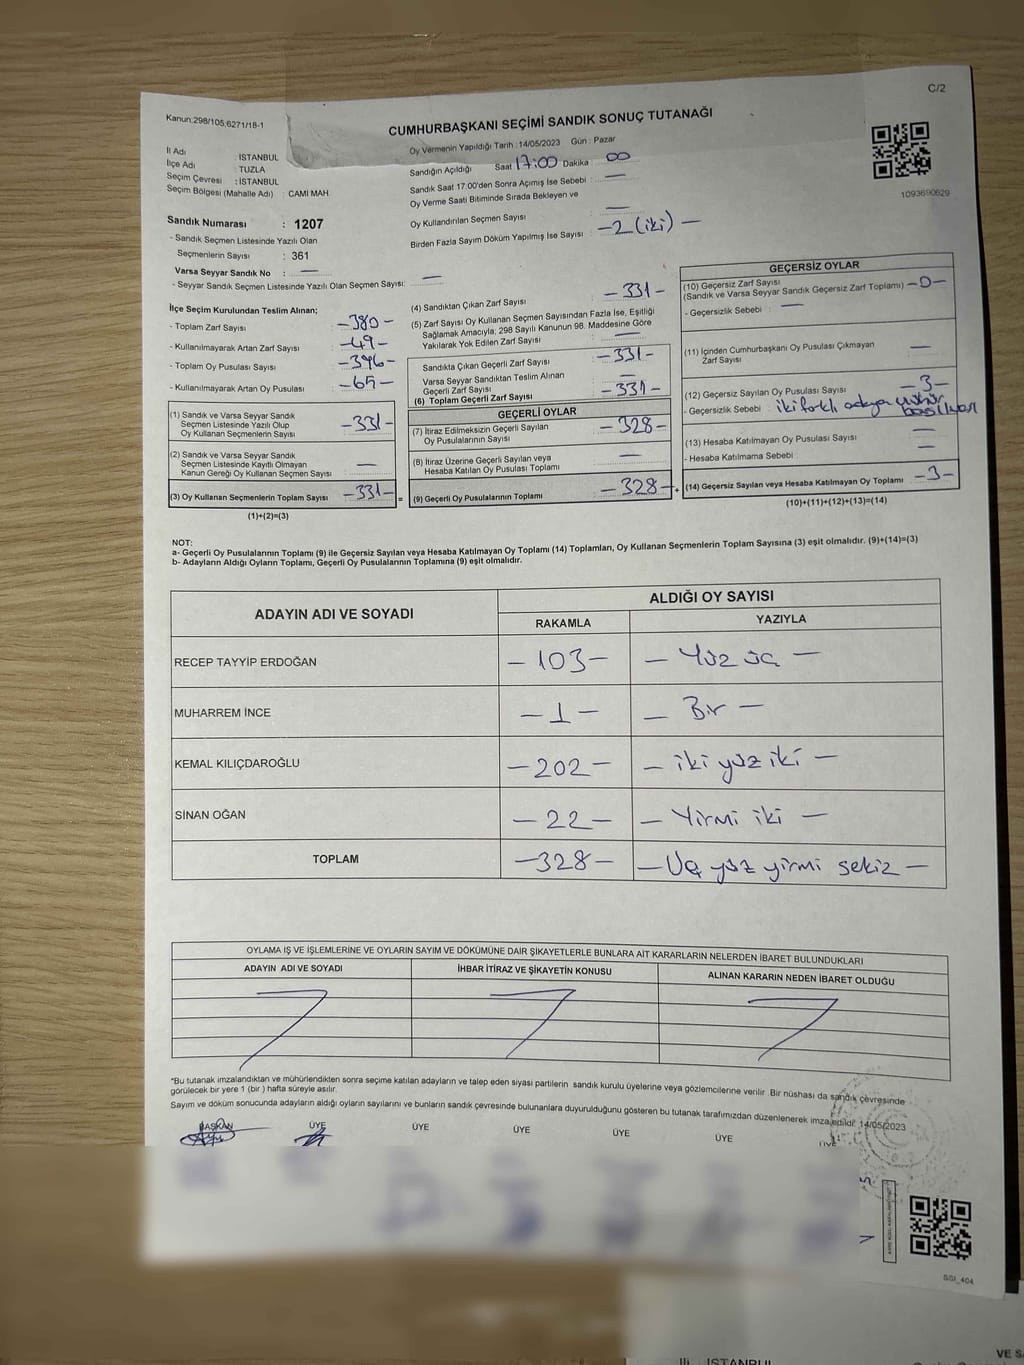 Kanun:298/105;6271/18-1
C/2
CUMHURBAŞKANI SEÇİMİ SANDIK SONUÇ TUTANAĞI
Oy Vermenin Yapıldığı Tarih :14/05/2023 Gün : Pazar
İl Adı : İSTANBUL
İlçe Adı : TUZLA
Seçim Çevresi : İSTANBUL
Seçim Bölgesi (Mahalle Adı) : CAMİ MAH.
Sandığın Açıldığı Saat 17:00 Dakika 00
Sandık Saat 17.00'den Sonra Açılmış İse Sebebi : —
Oy Verme Saati Bitiminde Sırada Bekleyen ve
Oy Kullandırılan Seçmen Sayısı —
Birden Fazla Sayım Döküm Yapılmış İse Sayısı : -2 (iki) -
1093690629
Sandık Numarası : 1207
- Sandık Seçmen Listesinde Yazılı Olan
Seçmenlerin Sayısı : 361
Varsa Seyyar Sandık No : —
- Seyyar Sandık Seçmen Listesinde Yazılı Olan Seçmen Sayısı: —
İlçe Seçim Kurulundan Teslim Alınan;
- Toplam Zarf Sayısı -380-
- Kullanılmayarak Artan Zarf Sayısı -49-
- Toplam Oy Pusulası Sayısı -396-
- Kullanılmayarak Artan Oy Pusulası -65-
(1) Sandık ve Varsa Seyyar Sandık
Seçmen Listesinde Yazılı Olup
Oy Kullanan Seçmenlerin Sayısı -331-
(2) Sandık ve Varsa Seyyar Sandık
Seçmen Listesinde Kayıtlı Olmayan
Kanun Gereği Oy Kullanan Seçmen Sayısı —
(3) Oy Kullanan Seçmenlerin Toplam Sayısı -331- =
(1)+(2)=(3)
(4) Sandıktan Çıkan Zarf Sayısı -331-
(5) Zarf Sayısı Oy Kullanan Seçmen Sayısından Fazla İse, Eşitliği
Sağlamak Amacıyla; 298 Sayılı Kanunun 98. Maddesine Göre
Yakılarak Yok Edilen Zarf Sayısı —
Sandıkta Çıkan Geçerli Zarf Sayısı -331-
Varsa Seyyar Sandıktan Teslim Alınan
Geçerli Zarf Sayısı —
(6) Toplam Geçerli Zarf Sayısı -331-
GEÇERLİ OYLAR
(7) İtiraz Edilmeksizin Geçerli Sayılan
Oy Pusulalarının Sayısı -328-
(8) İtiraz Üzerine Geçerli Sayılan veya
Hesaba Katılan Oy Pusulası Toplamı —
(9) Geçerli Oy Pusulalarının Toplamı -328- +
GEÇERSİZ OYLAR
(10) Geçersiz Zarf Sayısı
(Sandık ve Varsa Seyyar Sandık Geçersiz Zarf Toplamı) -0-
- Geçersizlik Sebebi : —
(11) İçinden Cumhurbaşkanı Oy Pusulası Çıkmayan
Zarf Sayısı —
(12) Geçersiz Sayılan Oy Pusulası Sayısı -3-
- Geçersizlik Sebebi iki farklı adaya mühür
(13) Hesaba Katılmayan Oy Pusulası Sayısı —
- Hesaba Katılmama Sebebi —
(14) Geçersiz Sayılan veya Hesaba Katılmayan Oy Toplamı -3-
(10)+(11)+(12)+(13)=(14)
NOT:
a- Geçerli Oy Pusulalarının Toplamı (9) ile Geçersiz Sayılan veya Hesaba Katılmayan Oy Toplamı (14) Toplamları, Oy Kullanan Seçmenlerin Toplam Sayısına (3) eşit olmalıdır. (9)+(14)=(3)
b- Adayların Aldığı Oyların Toplamı, Geçerli Oy Pusulalarının Toplamına (9) eşit olmalıdır.
ADAYIN ADI VE SOYADI ALDIĞI OY SAYISI
RAKAMLA YAZIYLA
RECEP TAYYİP ERDOĞAN -103- - Yüz üç -
MUHARREM İNCE -1- - Bir -
KEMAL KILIÇDAROĞLU -202- - iki yüz iki -
SİNAN OĞAN -22- - Yirmi iki -
TOPLAM -328- - Üç yüz yirmi sekiz -
OYLAMA İŞ VE İŞLEMLERİNE VE OYLARIN SAYIM VE DÖKÜMÜNE DAİR ŞİKAYETLERLE BUNLARA AİT KARARLARIN NELERDEN İBARET BULUNDUKLARI
ADAYIN ADI VE SOYADI İHBAR İTİRAZ VE ŞİKAYETİN KONUSU ALINAN KARARIN NEDEN İBARET OLDUĞU
"Bu tutanak imzalandıktan ve mühürlendikten sonra seçime katılan adayların ve talep eden siyasi partilerin sandık kurulu üyelerine veya gözlemcilerine verilir. Bir nüshası da sandık çevresinde
görülecek bir yere 1 (bir ) hafta süreyle asılır.
Sayım ve döküm sonucunda adayların aldığı oyların sayılarını ve bunların sandık çevresinde bulunanlara duyurulduğunu gösteren bu tutanak tarafımızdan düzenlenerek imza edildi. 14/05/2023
BAŞKAN ÜYE ÜYE ÜYE ÜYE ÜYE ÜYE
SSİ_404
İli : İSTANBUL